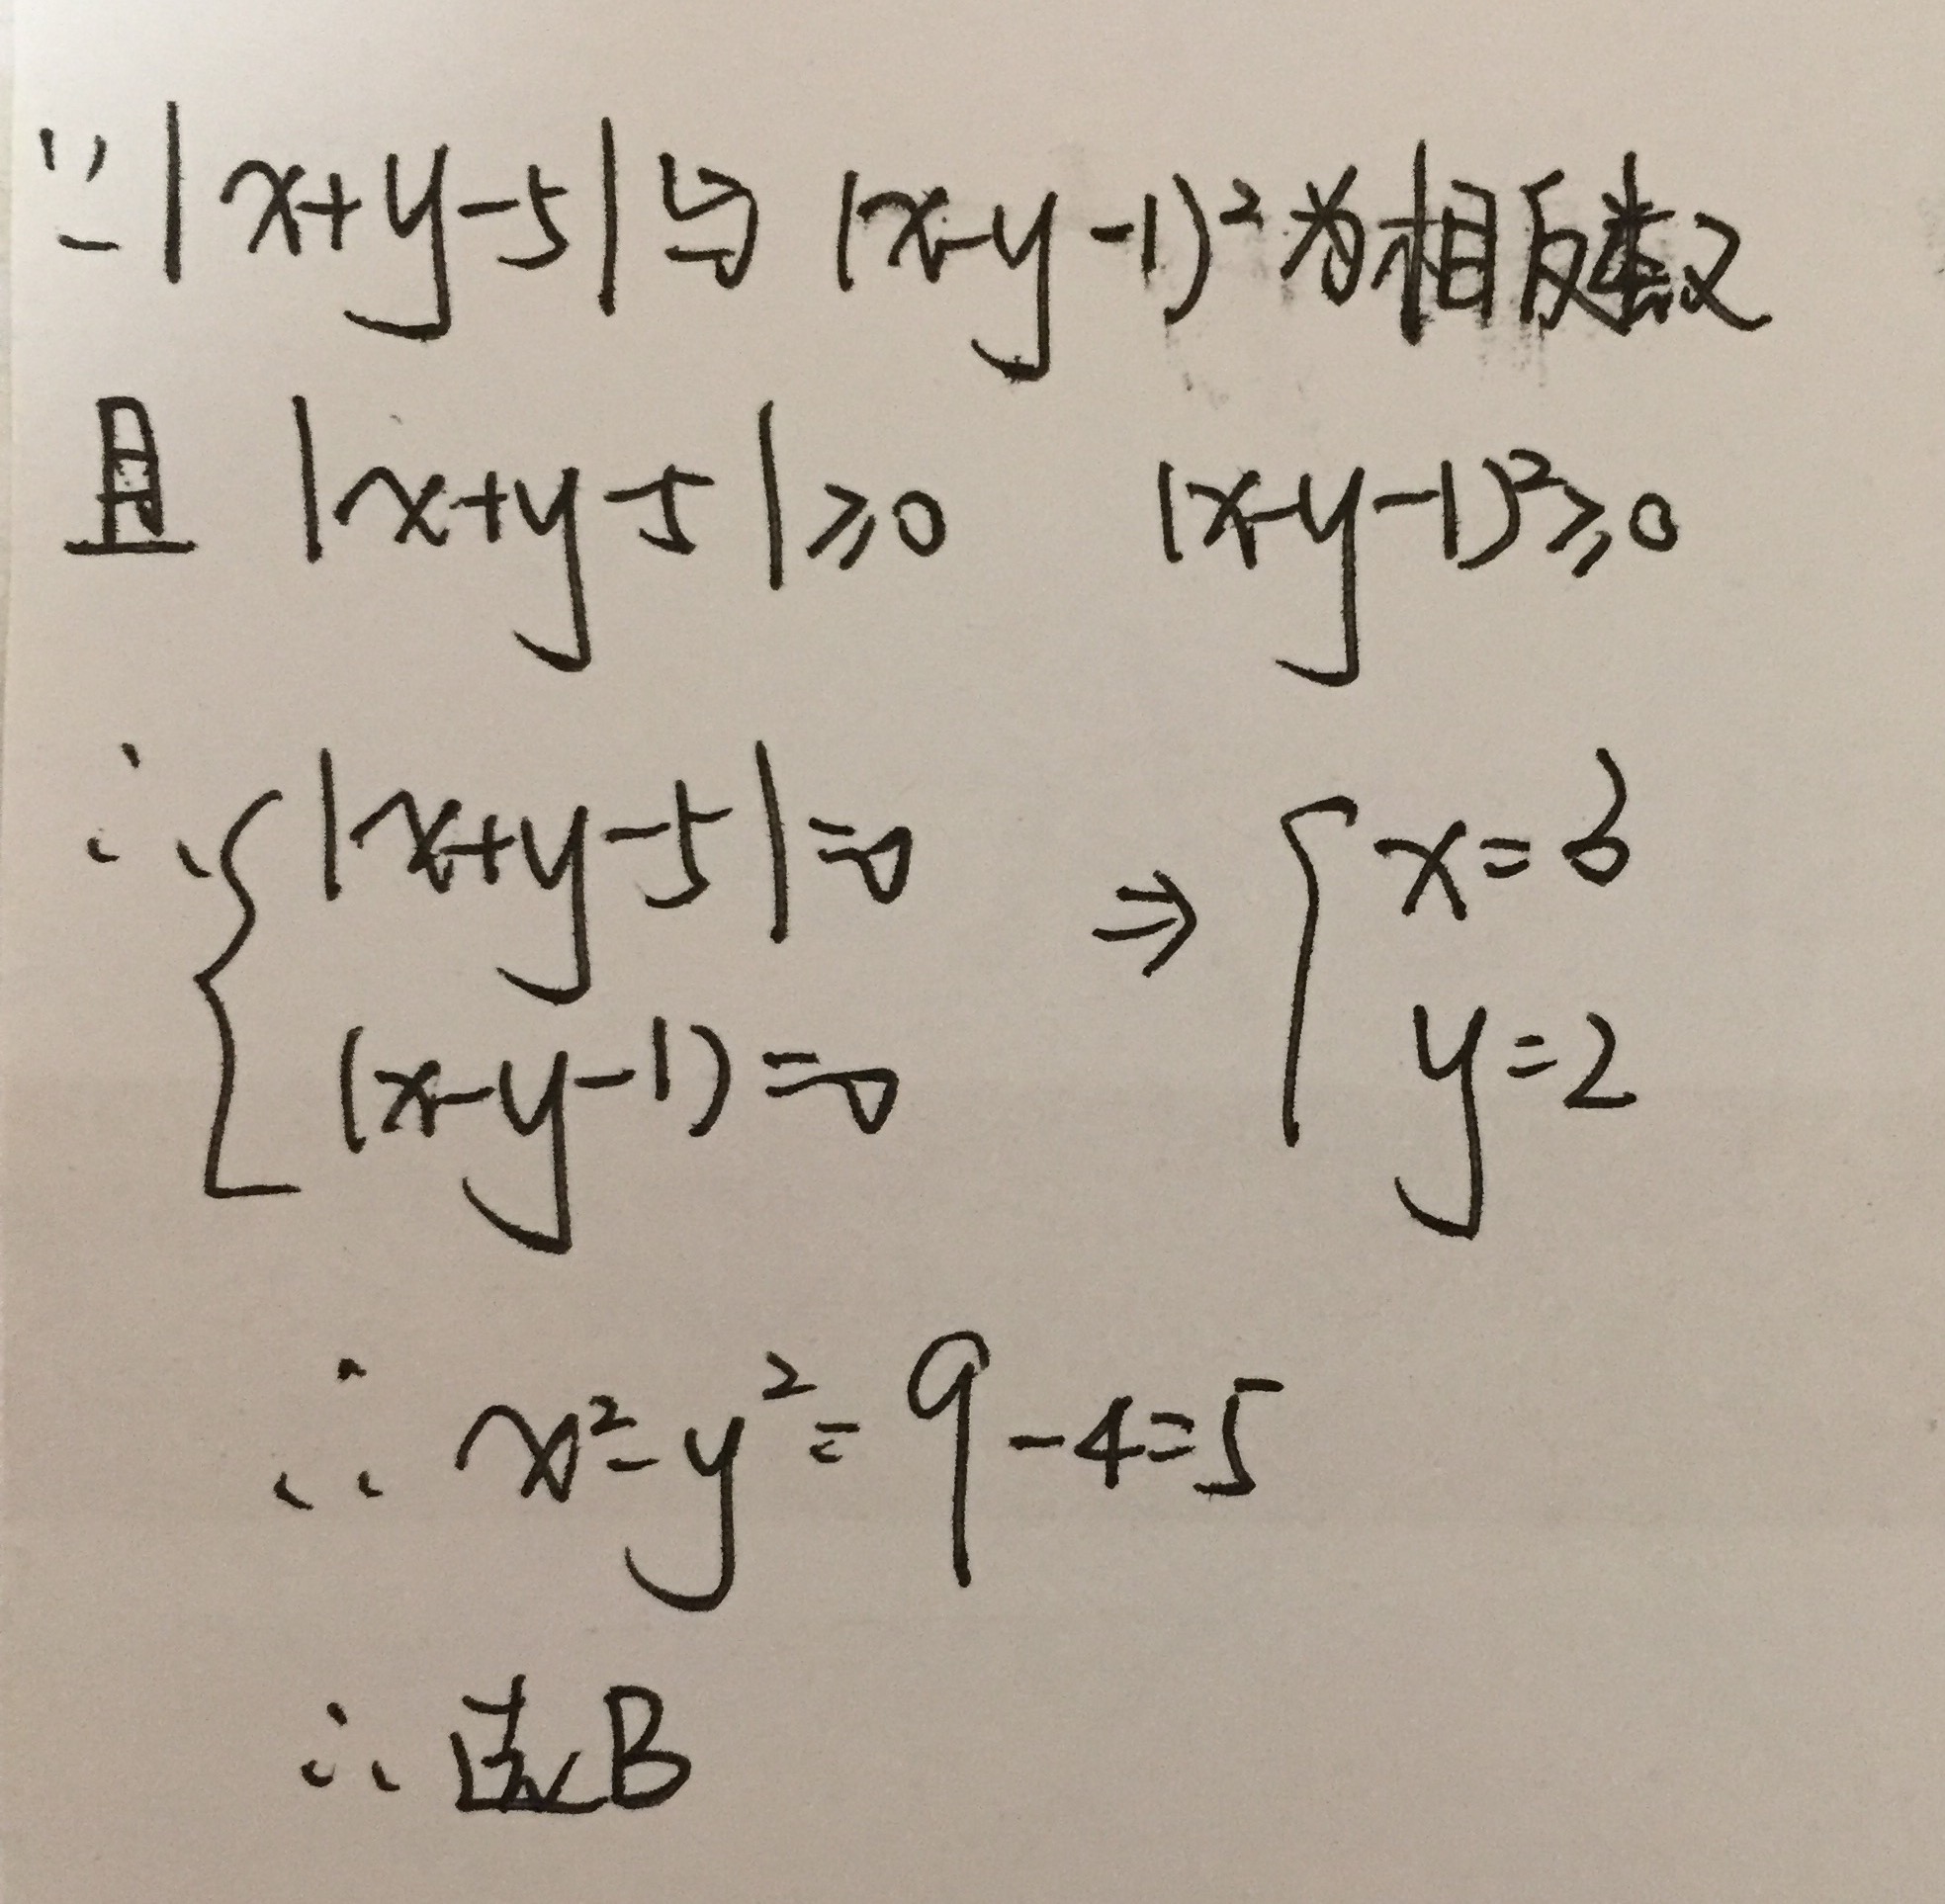 ∵|x+y-5|与(x-y-1)²为相反数
且 |x+y-5|≥0 (x-y-1)²≥0
∴{|x+y-5|=0 ⇒ {x=3
(x-y-1)=0 y=2
∴ x²-y²=9-4=5
∴选B